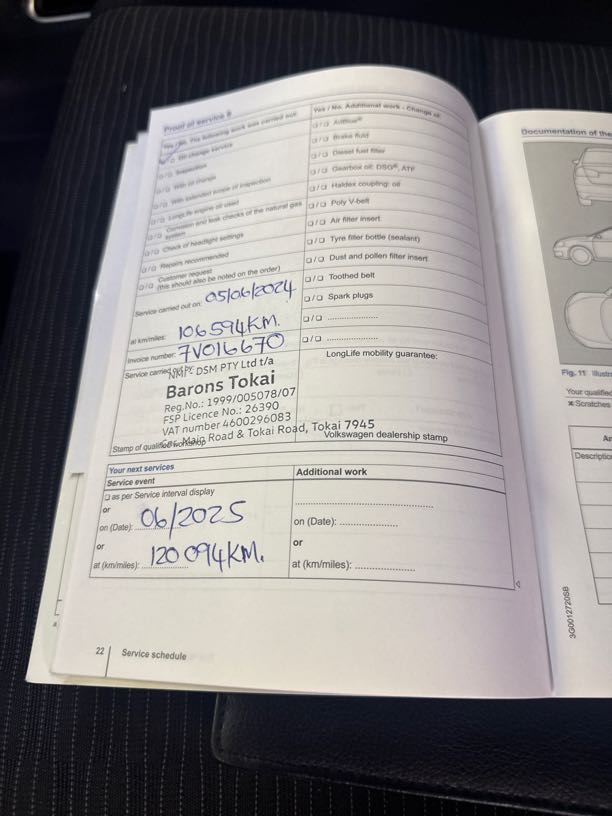 Proof of service 8
Yes / No. The following work was carried out:
Yes / No. Additional work - Change of:
❑/❑ Oil change service
❑/❑ AdBlue®
❑/❑ Inspection
❑/❑ Brake fluid
❑/❑ With oil change
❑/❑ Diesel fuel filter
❑/❑ With extended scope of inspection
❑/❑ Gearbox oil: DSG®, ATF
❑/❑ LongLife engine oil used
❑/❑ Haldex coupling: oil
❑/❑ Corrosion and leak checks of the natural gas
system
❑/❑ Poly V-belt
❑/❑ Check of headlight settings
❑/❑ Air filter insert
❑/❑ Repairs recommended
❑/❑ Tyre filler bottle (sealant)
❑/❑ Customer request
(this should also be noted on the order)
❑/❑ Dust and pollen filter insert
❑/❑ Toothed belt
Service carried out on: 05/06/2024
❑/❑ Spark plugs
❑/❑ ....................
at km/miles: 106594KM.
❑/❑ ....................
Invoice number: 7V016670
LongLife mobility guarantee:
Service carried out by:
DSM PTY Ltd t/a
Barons Tokai
Reg.No.: 1999/005078/07
FSP Licence No.: 26390
VAT number 4600296083
Main Road & Tokai Road, Tokai 7945
Stamp of qualified workshop
Volkswagen dealership stamp
Your next services
Service event
Additional work
❑ as per Service interval display
or
on (Date): 06/2025
on (Date): ....................
or
or
at (km/miles): 120 094KM.
at (km/miles): ....................
22 Service schedule
Documentation of the
Fig. 11
Your qualified
Scratches
Descriptio
3G0012720SB